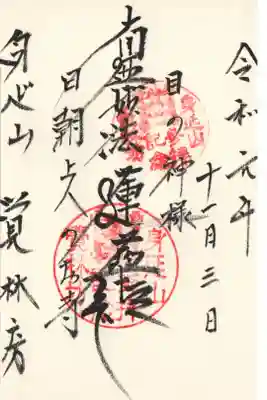 令和元年
十一月三日
目の神様
南無妙法蓮華経
日朝上人のお寺
身延山 覚林房